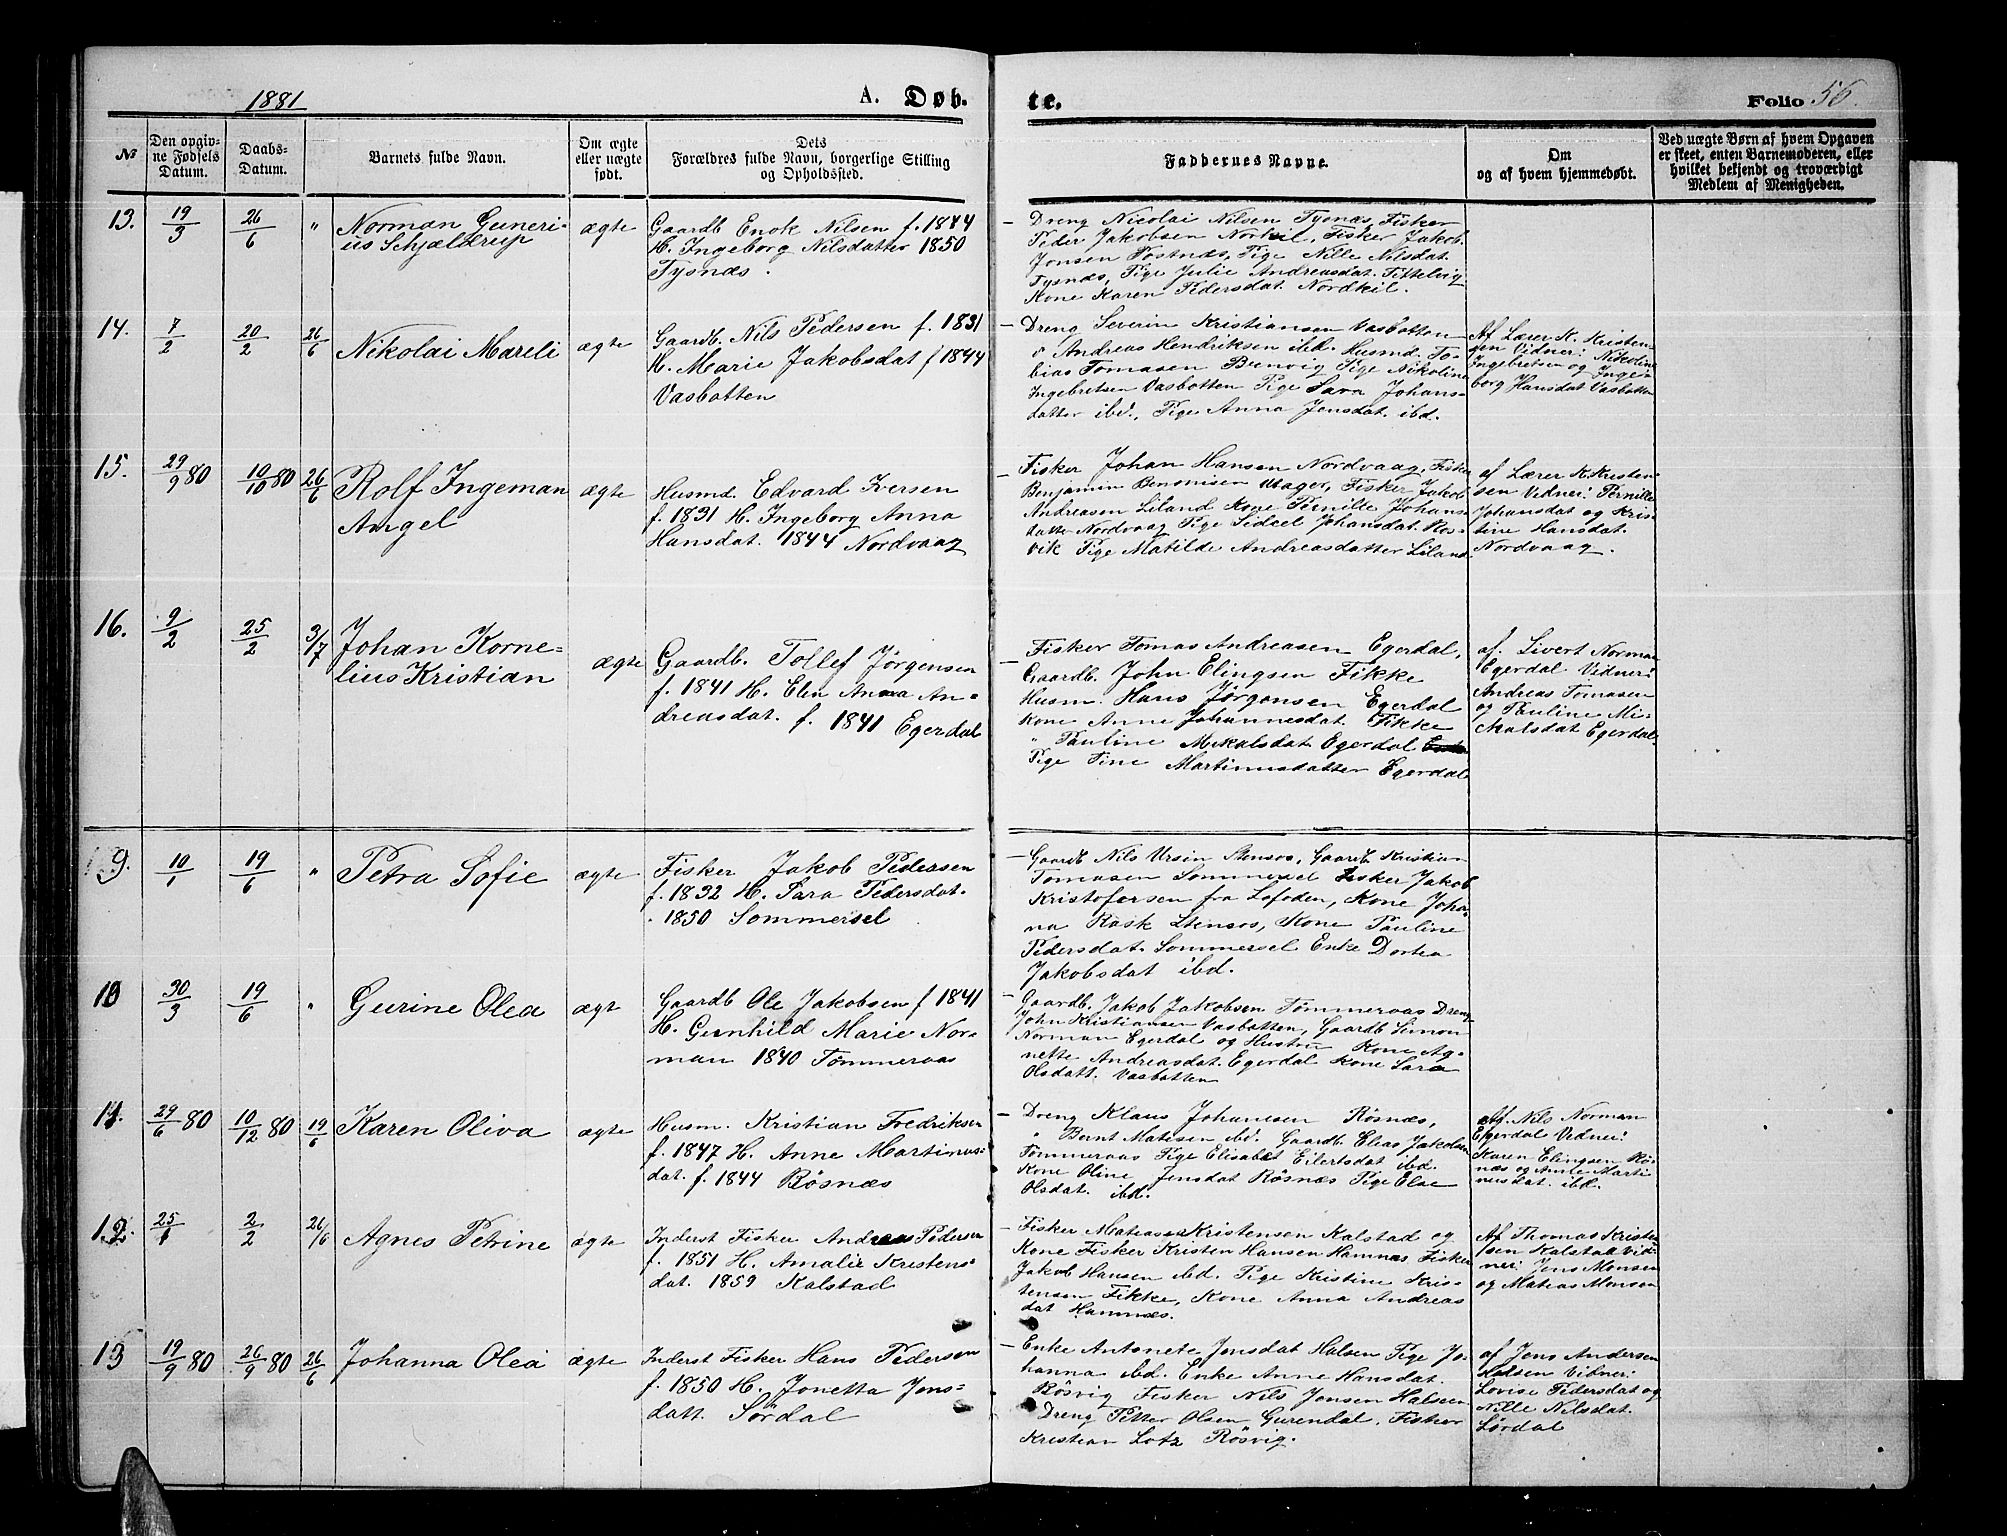 1881 A. Døb. te. Folio 56.
№
Den opgivne Fødsels Datum.
Daabs-Datum.
Barnets fulde Navn.
Om ægte eller uægte født.
Dets Forældres fulde Navn, borgerlige Stilling og Opholdssted.
Faddernes Navne.
Om og af hvem hjemmedøbt.
Ved uægte Børn af hvem Opgaven er skeet, enten Barnemoderen, eller hvilket bekjendt og troværdigt Medlem af Menigheden.
13. 19/3 26/6 "
Norman Guneri-
us Schjælderup
ægte
Gaardb Enok Nilsen f. 1844
H. Ingeborg Nilsdatter 1850
Tysnæs.
– Dreng Nicolai Nilsen Tysnæs, Fisker
Peder Jakobsen Norkil, Fisker Jakob
Jonsen Postnæs, Pige Nille Nilsdat.
Tysnæs, Pige Julie Andreasdat. Tittelvig
Kone Karen Pedersdat. Nordkil.
14. 7/2 20/2 26/6
Nikolai Mareli
ægte
Gaardb. Nils Pedersen f. 1831
H. Marie Jakobsdat f 1844
Vasbotten
– Dreng Severin Kristiansen Vasbotten
Andreas Hendriksen ibd. Husmd. To-
bias Tomasen Bienvig Pige Nikoline
Ingebretsen Vasbotten Pige Sara Johans-
datter ibd., Pige Anna Jensdat. ibd.
Af Lærer K. Kristen-
sen Vidner: Nikoline
Ingebretsen og Inge-
borg Hansdat Vasbotten
15. 29/9 80 10/10 80 26/6
Rolf Ingeman
Angel
ægte
Husmd. Edvard Iversen
f. 1831 H. Ingeborg Anna
Hansdat. 1844 Nordvaag
– Fisker Johan Hansen Nordvaag, Fisker
Benjamin Bensonisen Mager, Fisker Jakob
Andreasen Liland Kone Pernille Johans-
datter Nordvaag Pige Sidsel Johansdat. Ros-
vik Pige Matilde Andreasdatter Liland
af Lærer K Kristen-
sen Vidner: Pernille
Johansdat og Kris-
tine Hansdat.
Nordvaag.
16. 9/2 25/2 3/7
Johan Korne-
lius Kristian
ægte
Gaardb. Tollef Jörgensen
f. 1841 H. Elen Anna An-
dreasdat. f. 1841 Egerdal
– Fisker Tomas Andreasen Egerdal,
Gaardb. John Elingsen Fikke
Husm. Hans Jørgensen Egerdal
Kone Anne Johannesdat. Fikke
" Pauline Mikalsdat Egerdal
Pige Tine Martinusdatter Egerdal
af. Sivert Norman
Egerdal Vidner:
Andreas Tomasen
og Pauline Mi-
kalsdat Egerdal.
9. 10/1 19/6 "
Petra Sofie
ægte
Fisker Jakob Pedersen
f. 1832 H. Sara Pedersdat.
1850 Sommersel
– Gaardb Nils Ursin Stensos, Gaardb Kristian
Tomasen Sommersel Fisker Jakob
Kristofersen fra Lofoden, Kone Joha-
na Rask Stensos, Kone Pauline
Pedersdat. Sommersel Enke Dortea
Jakobsdat ibd.
10 30/3 19/6 "
Gurine Olea
ægt
Gaardb Ole Jakobsen f 1841
H. Gunhild Marie Nor-
man 1840 Tømmeraas
– Gaardb. Jakob Jakobsen Tømmeraas Dreng
John Kristiansen Vasbotten, Gaardb Simon
Norman Egerdal og Hustru Kone Ag-
nette Andreasdat. Egerdal Kone Sara
Olsdatt. Vasbotten
11. 29/6 80 10/12 80 19/6
Karen Oliva
ægte
Husm. Kristian Fredriksen
f. 1847 H. Anne Martinus-
dat. f. 1844 Røsnæs
– Dreng Klaus Johansen Røsnæs,
" Bernt Matisen ibd. Gaardb Elias Jakobsen
Tømmeraas Pige Elisabet Eilertsdat ibd.
Kone Oline Jensdat Røsnæs Pige Else
Olsdat. ibd.
af. Nils Norman
Egerdal Vidner:
Karen Elingsen Rø-
næs og Anne Marti
nusdat. ibd.
12. 25/1 2/2 26/6
Agnes Petrine
ægte
Inderst Fisker Andreas Pedersen
f. 1851 H. Amalie Kristens
dat. 1859 Kalstad
– Fisker Mateas Kristensen Kalstad og
Kone Fisker Kristen Hansen Hamnæs Fisker
Jakob Hansen ibd. Pige Kristine Kris-
tensen Fikke, Kone Anna Andreas
dat Hamnæs.
Af Thomas Kristen
sen Kalstad Vid-
ner: Jens Monsen
og Matias Monsen
13 19/9 80 26/9 80 26/6
Johanna Olea
ægte
Inderst Fisker Hans Pedersen
f. 1850 H. Jonetta Jens-
datt. Sørdal
– Enke Antonete Jensdat Halsen Pige Jo-
hanna ibd. Enke Anne Hansdat.
Røsvig Fisker Nils Jensen Halseen
Dreng Petter Olsen Gurendal, Fisker
Kristian Lotz Røsvig.
af Jens Andersen
Halsen Vidner:
Lovise Pedersdat og
Nille Nilsdat.
Sørdal